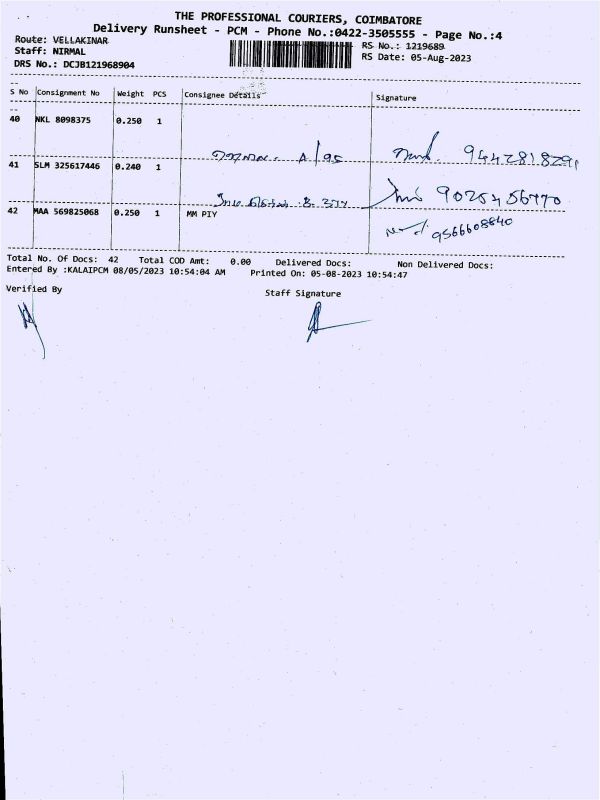 THE PROFESSIONAL COURIERS, COIMBATORE
Delivery Runsheet - PCM - Phone No.:0422-3505555 - Page No.:4
Route: VELLAKINAR RS No.: 1219689
Staff: NIRMAL RS Date: 05-Aug-2023
DRS No.: DCJB121968904
S No Consignment No Weight PCS Consignee Details Signature
40 NKL 8098375 0.250 1
A/95 9442818291
41 SLM 325617446 0.240 1
9025456770
42 MAA 569825068 0.250 1 MM PIY
9566608840
Total No. Of Docs: 42 Total COD Amt: 0.00 Delivered Docs: Non Delivered Docs:
Entered By :KALAIPCM 08/05/2023 10:54:04 AM Printed On: 05-08-2023 10:54:47
Verified By Staff Signature